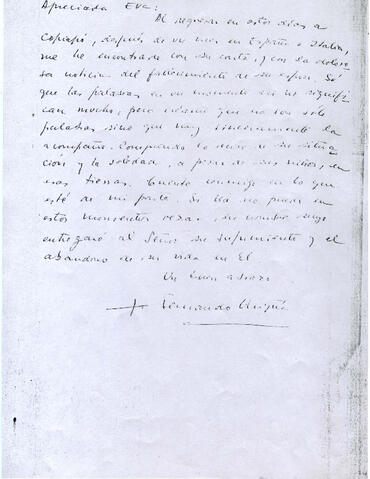 Apreciada Eva:
Al regresar en estos días a
Copiapó, después de un mes en España e Italia,
me he encontrado con su carta, y con la doloro
sa noticia del fallecimiento de su esposo. Sé
que las palabras en un momento así no signifi
can mucho, pero créame que no son sólo
palabras sino que muy sinceramente la
acompaño. Comprendo lo duro de su situa
ción y la soledad, a pesar de sus niños, en
esas tierras. Cuente conmigo en lo que
esté de mi parte. Si Ud. no puede en
estos momentos rezar, en nombre suyo
entregaré al Señor su sufrimiento y el
abandono de su vida en El
Un buen abrazo
+ Fernando Ariztía